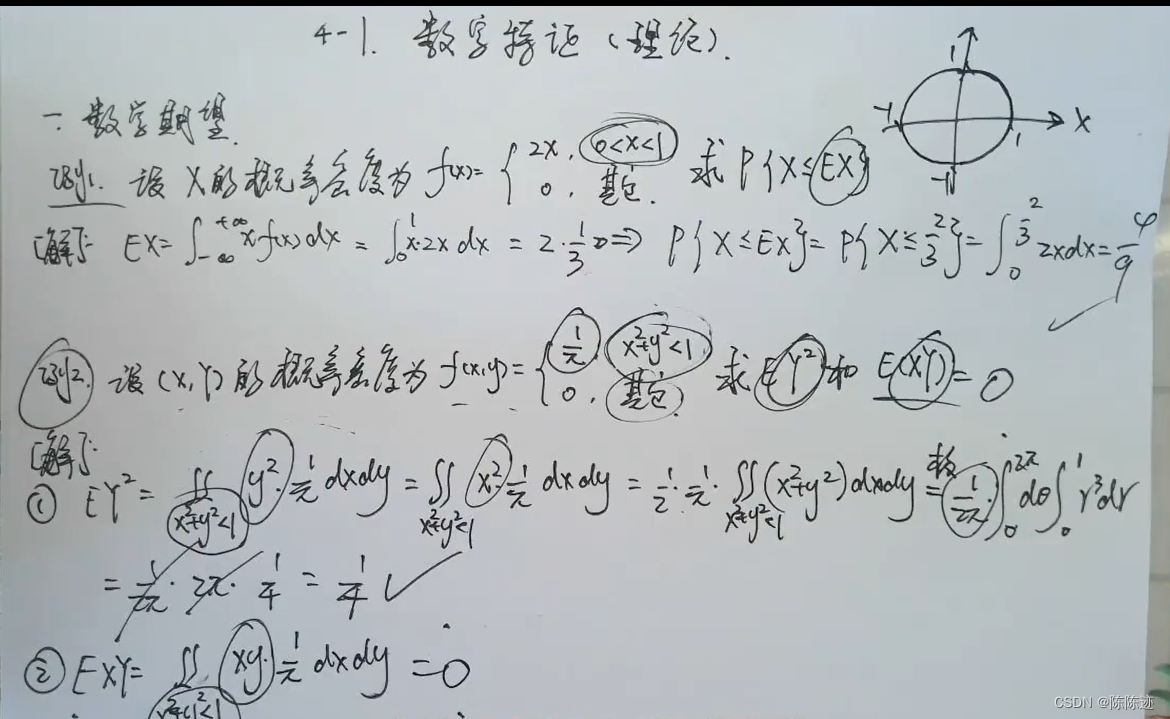 4-1. 数字特征（理论）.
一. 数学期望.
例1. 设 X 的概率密度为 f(x)= { 2x, 0<x<1 0, 其它. 求 P{X≤EX}
[解]: EX= ∫_{-∞}^{+∞} x·f(x)dx = ∫_0^1 x·2x dx = 2·1/3 ⇒ P{X≤EX}= P{X≤2/3}= ∫_0^{2/3} 2xdx= 4/9
例2. 设 (X,Y) 的概率密度为 f(x,y)= { 1/π, x²+y²<1 0, 其它. 求 EY² 和 E(XY) = 0
[解]:
① EY² = ∬_{x²+y²<1} y²·1/π dxdy = ∬_{x²+y²<1} x²·1/π dxdy = 1/2·1/π·∬_{x²+y²<1} (x²+y²)dxdy = 1/2π·∫_0^{2π} dθ ∫_0^1 r³dr
= 1/2π · 2π · 1/4 = 1/4 ✓
② EXY= ∬_{x²+y²<1} xy·1/π dxdy =0
1
-1
1
-1
X
CSDN @陈陈迹